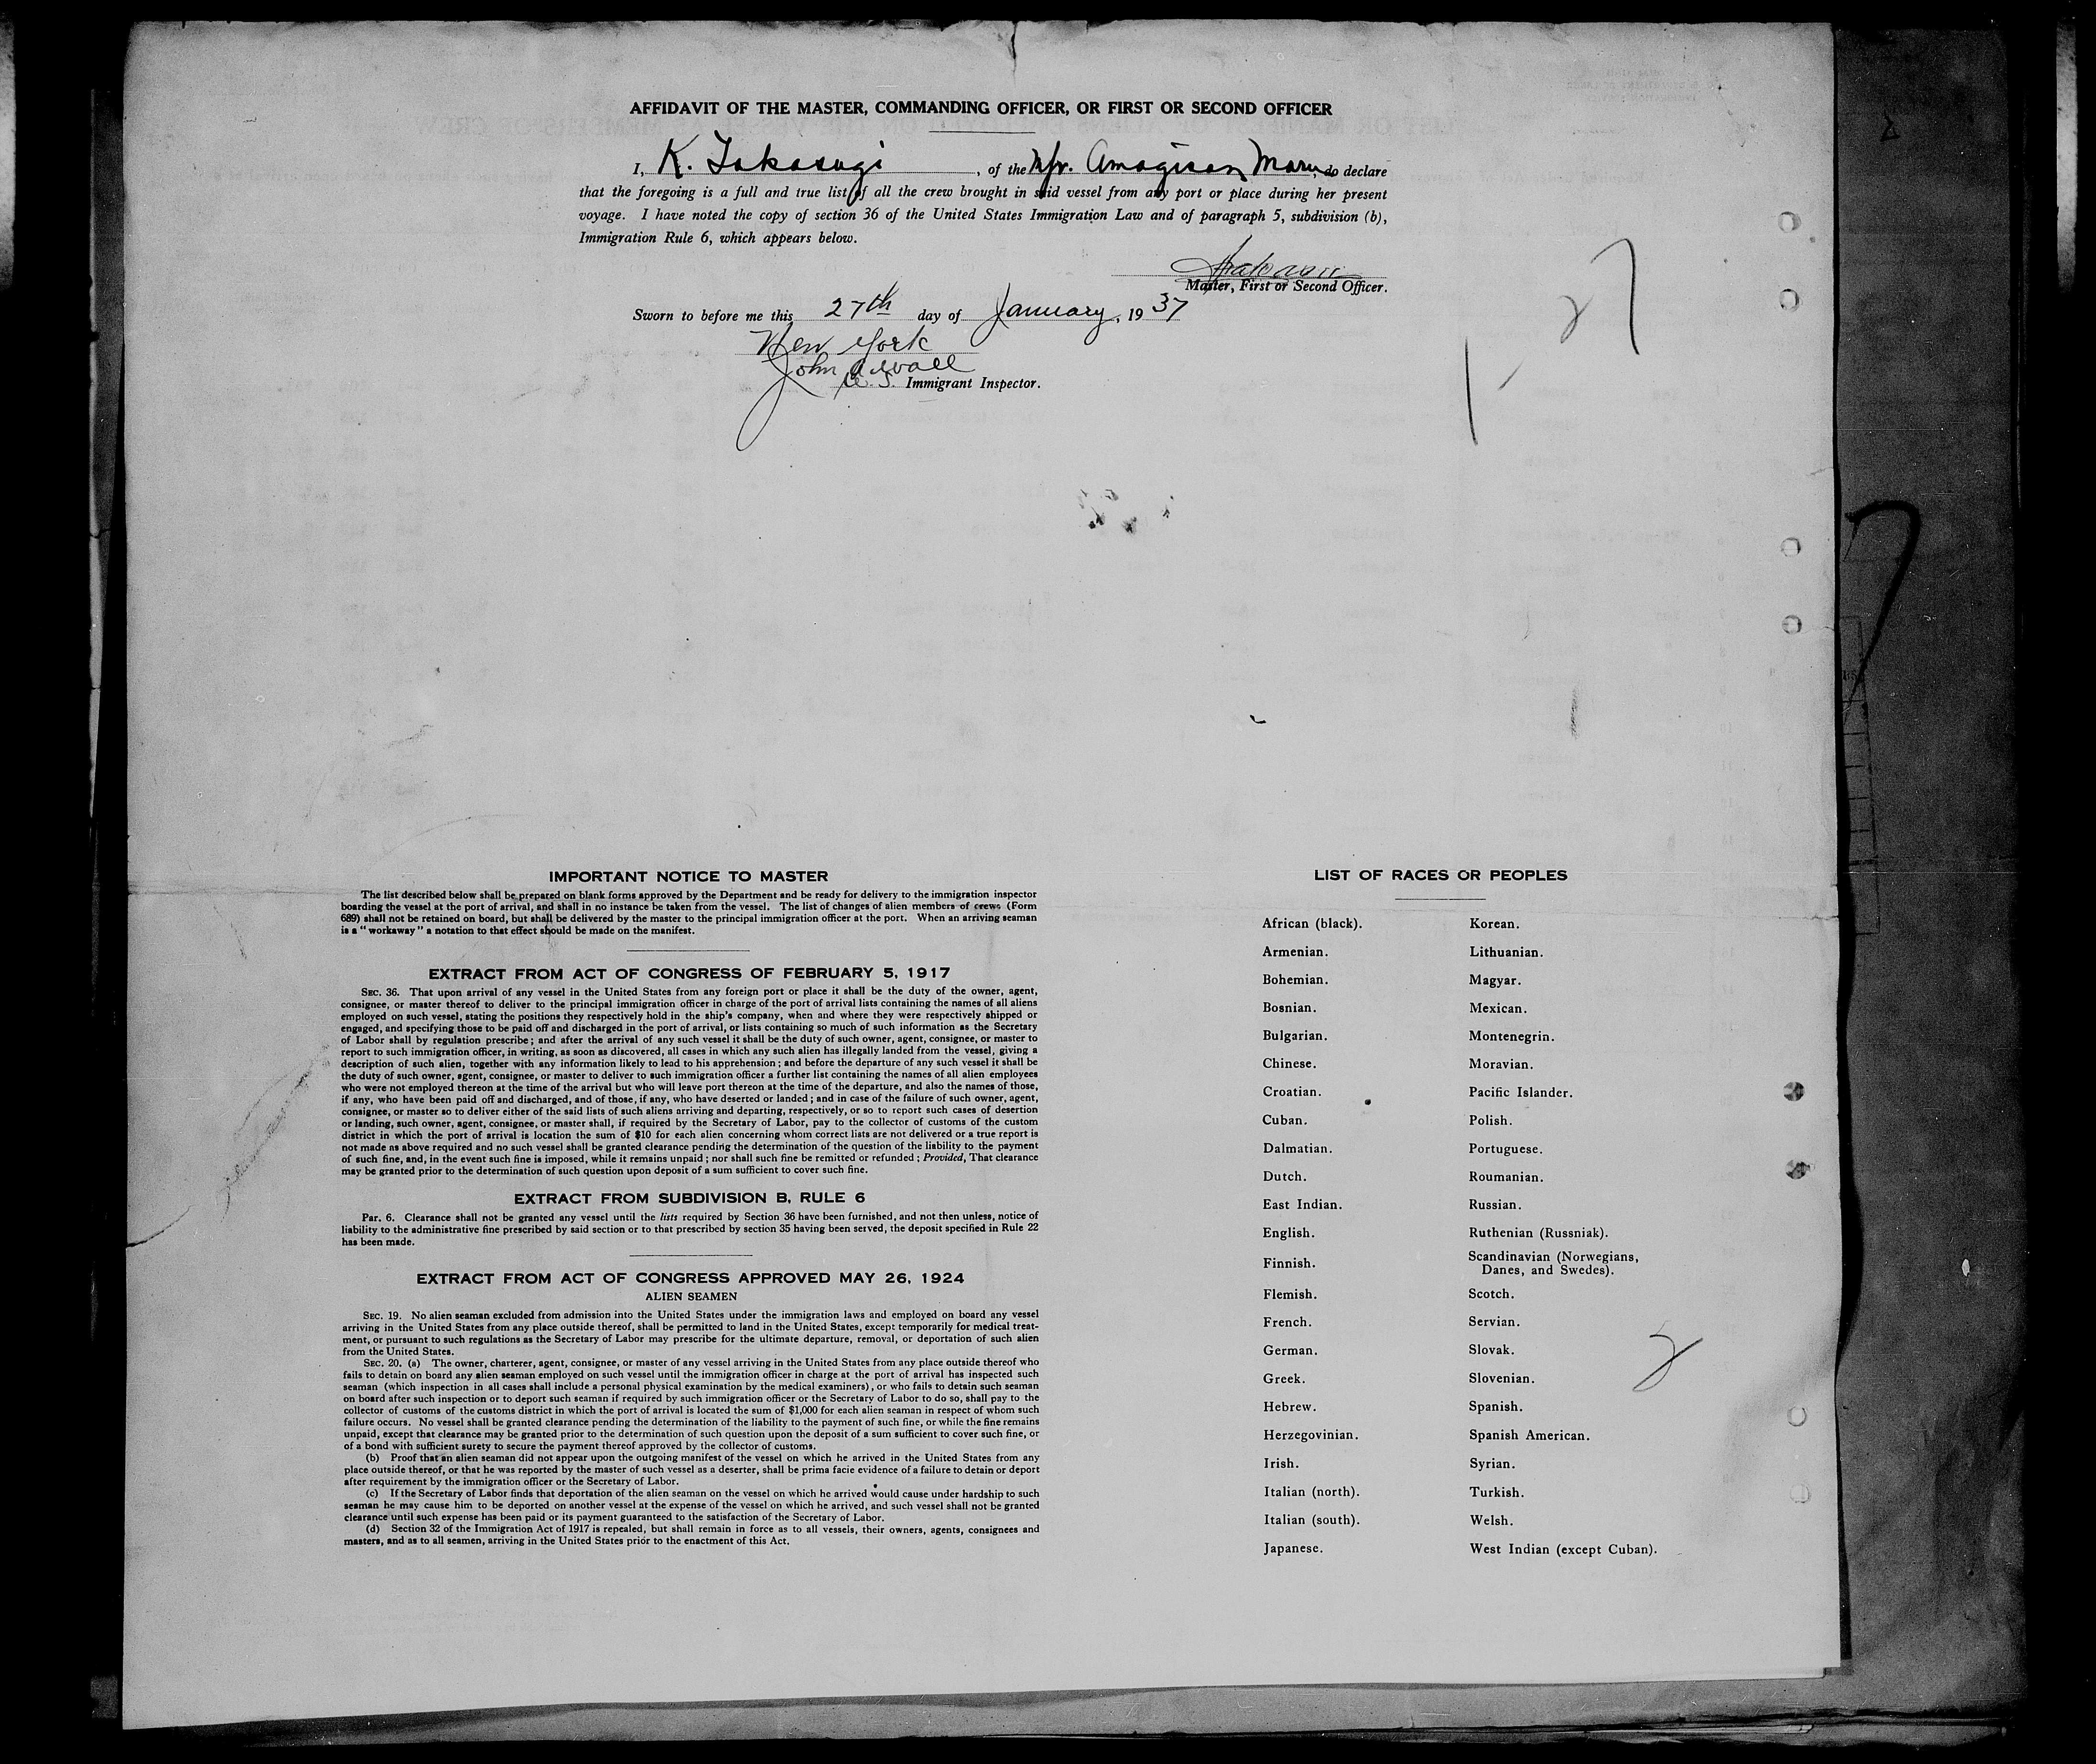 AFFIDAVIT OF THE MASTER, COMMANDING OFFICER, OR FIRST OR SECOND OFFICER
I, K. Takasugi, of the Amagisan Maru, do declare
that the foregoing is a full and true list of all the crew brought in said vessel from any port or place during her present
voyage. I have noted the copy of section 36 of the United States Immigration Law and of paragraph 5, subdivision (b),
Immigration Rule 6, which appears below.
Master, First or Second Officer.
Sworn to before me this 27th day of January, 1937
New York
John
U. S. Immigrant Inspector.
IMPORTANT NOTICE TO MASTER
The list described below shall be prepared on blank forms approved by the Department and be ready for delivery to the immigration inspector
boarding the vessel at the port of arrival, and shall in no instance be taken from the vessel. The list of changes of alien members of crews (Form
689) shall not be retained on board, but shall be delivered by the master to the principal immigration officer at the port. When an arriving seaman
is a "workaway" a notation to that effect should be made on the manifest.
EXTRACT FROM ACT OF CONGRESS OF FEBRUARY 5, 1917
SEC. 36. That upon arrival of any vessel in the United States from any foreign port or place it shall be the duty of the owner, agent,
consignee, or master thereof to deliver to the principal immigration officer in charge of the port of arrival lists containing the names of all aliens
employed on such vessel, stating the positions they respectively hold in the ship's company, when and where they were respectively shipped or
engaged, and specifying those to be paid off and discharged in the port of arrival, or lists containing so much of such information as the Secretary
of Labor shall by regulation prescribe; and after the arrival of any such vessel it shall be the duty of such owner, agent, consignee, or master to
report to such immigration officer, in writing, as soon as discovered, all cases in which any such alien has illegally landed from the vessel, giving a
description of such alien, together with any information likely to lead to his apprehension; and before the departure of any such vessel it shall be
the duty of such owner, agent, consignee, or master to deliver to such immigration officer a further list containing the names of all alien employees
who were not employed thereon at the time of the arrival but who will leave port thereon at the time of the departure, and also the names of those,
if any, who have been paid off and discharged, and of those, if any, who have deserted or landed; and in case of the failure of such owner, agent,
consignee, or master so to deliver either of the said lists of such aliens arriving and departing, respectively, or so to report such cases of desertion
or landing, such owner, agent, consignee, or master shall, if required by the Secretary of Labor, pay to the collector of customs of the custom
district in which the port of arrival is location the sum of $10 for each alien concerning whom correct lists are not delivered or a true report is
not made as above required and no such vessel shall be granted clearance pending the determination of the question of the liability to the payment
of such fine, and, in the event such fine is imposed, while it remains unpaid; nor shall such fine be remitted or refunded; Provided, That clearance
may be granted prior to the determination of such question upon deposit of a sum sufficient to cover such fine.
EXTRACT FROM SUBDIVISION B, RULE 6
Par. 6. Clearance shall not be granted any vessel until the lists required by Section 36 have been furnished, and not then unless, notice of
liability to the administrative fine prescribed by said section or to that prescribed by section 35 having been served, the deposit specified in Rule 22
has been made.
EXTRACT FROM ACT OF CONGRESS APPROVED MAY 26, 1924
ALIEN SEAMEN
SEC. 19. No alien seaman excluded from admission into the United States under the immigration laws and employed on board any vessel
arriving in the United States from any place outside thereof, shall be permitted to land in the United States, except temporarily for medical treat-
ment, or pursuant to such regulations as the Secretary of Labor may prescribe for the ultimate departure, removal, or deportation of such alien
from the United States.
SEC. 20. (a) The owner, charterer, agent, consignee, or master of any vessel arriving in the United States from any place outside thereof who
fails to detain on board any alien seaman employed on such vessel until the immigration officer in charge at the port of arrival has inspected such
seaman (which inspection in all cases shall include a personal physical examination by the medical examiners), or who fails to detain such seaman
on board after such inspection or to deport such seaman if required by such immigration officer or the Secretary of Labor to do so, shall pay to the
collector of customs of the customs district in which the port of arrival is located the sum of $1,000 for each alien seaman in respect of whom such
failure occurs. No vessel shall be granted clearance pending the determination of the liability to the payment of such fine, or while the fine remains
unpaid, except that clearance may be granted prior to the determination of such question upon the deposit of a sum sufficient to cover such fine, or
of a bond with sufficient surety to secure the payment thereof approved by the collector of customs.
(b) Proof that an alien seaman did not appear upon the outgoing manifest of the vessel on which he arrived in the United States from any
place outside thereof, or that he was reported by the master of such vessel as a deserter, shall be prima facie evidence of a failure to detain or deport
after requirement by the immigration officer or the Secretary of Labor.
(c) If the Secretary of Labor finds that deportation of the alien seaman on the vessel on which he arrived would cause under hardship to such
seaman he may cause him to be deported on another vessel at the expense of the vessel on which he arrived, and such vessel shall not be granted
clearance until such expense has been paid or its payment guaranteed to the satisfaction of the Secretary of Labor.
(d) Section 32 of the Immigration Act of 1917 is repealed, but shall remain in force as to all vessels, their owners, agents, consignees and
masters, and as to all seamen, arriving in the United States prior to the enactment of this Act.
LIST OF RACES OR PEOPLES
African (black).
Armenian.
Bohemian.
Bosnian.
Bulgarian.
Chinese.
Croatian.
Cuban.
Dalmatian.
Dutch.
East Indian.
English.
Finnish.
Flemish.
French.
German.
Greek.
Hebrew.
Herzegovinian.
Irish.
Italian (north).
Italian (south).
Japanese.
Korean.
Lithuanian.
Magyar.
Mexican.
Montenegrin.
Moravian.
Pacific Islander.
Polish.
Portuguese.
Roumanian.
Russian.
Ruthenian (Russniak).
Scandinavian (Norwegians,
Danes, and Swedes).
Scotch.
Servian.
Slovak.
Slovenian.
Spanish.
Spanish American.
Syrian.
Turkish.
Welsh.
West Indian (except Cuban).